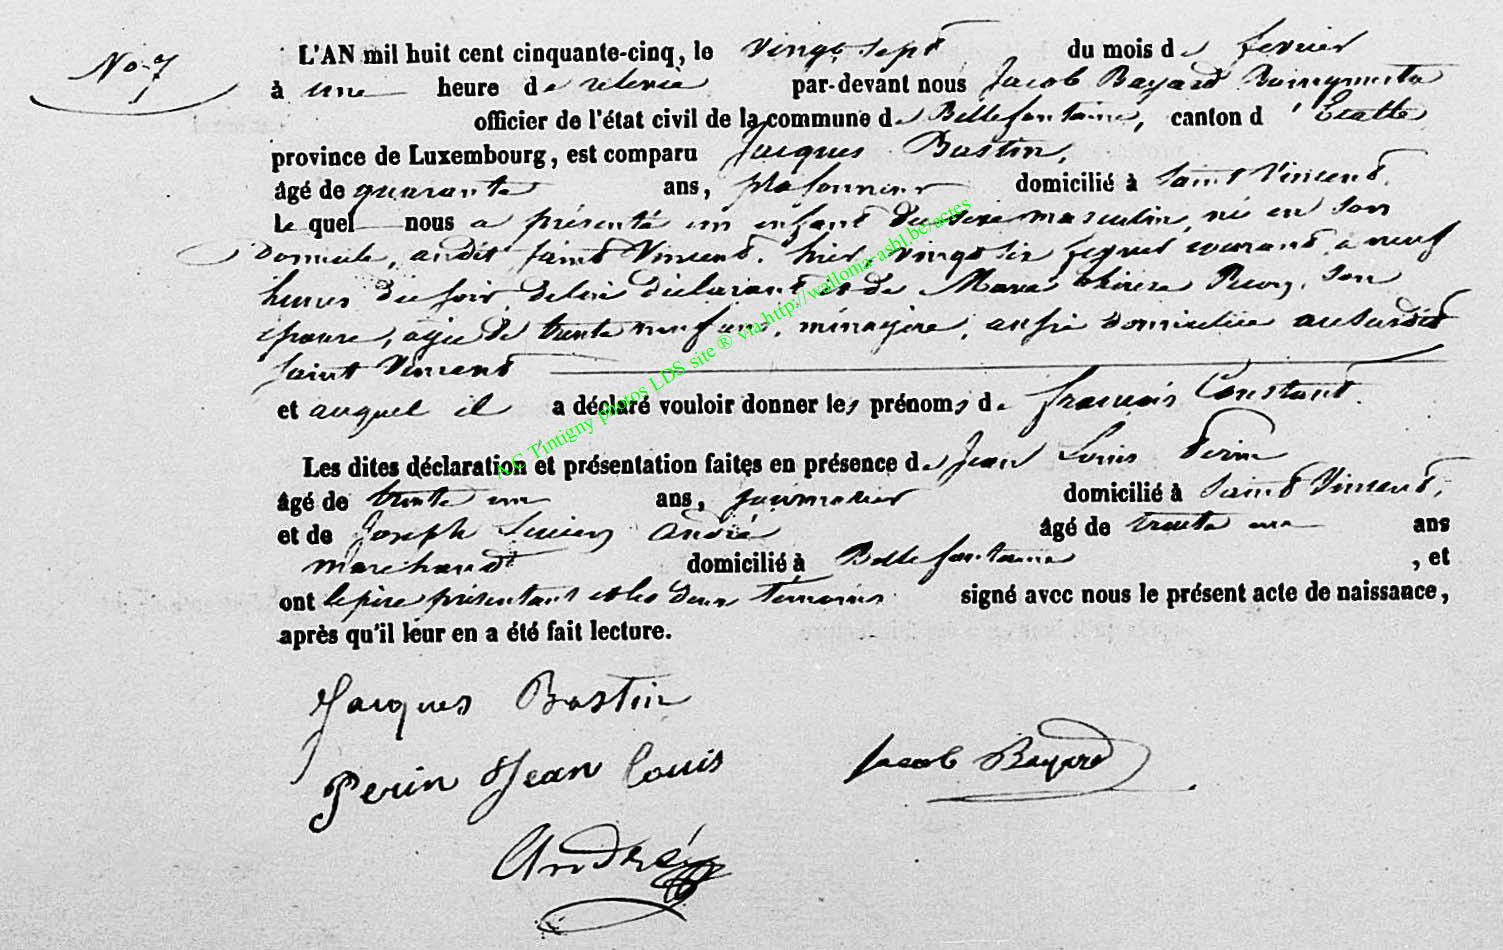 No 7
L'AN mil huit cent cinquante-cinq, le vingt sept du mois de fevrier
à une heure de relevée par-devant nous Jacob Bayard Bourgmestre
officier de l'état civil de la commune de Bellefontaine, canton d'Etalle
province de Luxembourg, est comparu Jacques Bastin,
âgé de quarante ans, plafonneur domicilié à Saint Vincent
Le quel nous a présenté un enfant du sexe masculin, né en son
domicile, audit Saint Vincent, hier, vingt six fevrier courant, a neuf
heures du soir, de lui déclarant et de Marie thérèse son
épouse, agée de trente neuf ans, ménagère, aussi domiciliée au susdit
Saint Vincent
et auquel il a déclaré vouloir donner les prénoms de françois Constant.
Les dites déclaration et présentation faites en présence de Jean Louis Perin
âgé de trente un ans, domicilié à Saint Vincent,
et de Joseph Lucien André âgé de trente un ans
marchand domicilié à Bellefontaine, et
ont le père présentant et les deux temoins signé avec nous le présent acte de naissance,
après qu'il leur en a été fait lecture.
Jacques Bastin
Perin Jean Louis
Jacob Bayard
André
A.E Tintigny photos LDS site ® via http://wallonia-asbl.be/actes